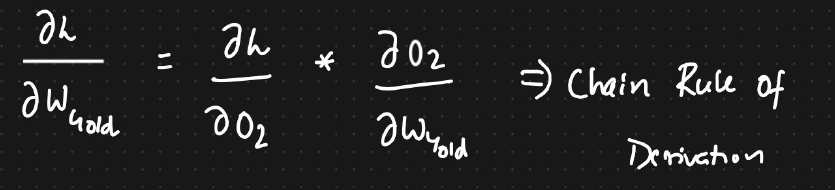 ∂h/∂W₄old = ∂h/∂O₂ * ∂O₂/∂W₄old ⇒ Chain Rule of
Derivation